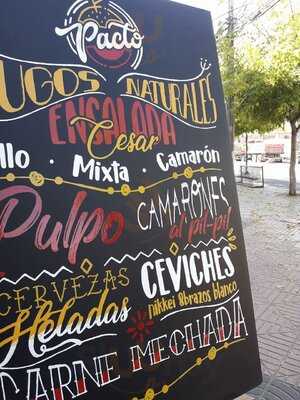 Pacto
UGOS NATURALES
ENSALADA
Cesar
llo · Mixta · Camarón
Pulpo
CAMARONES
al pil-pil
CERVEZAS
Heladas
CEVICHES
nikkei & brazos blanco
CARNE MECHADA